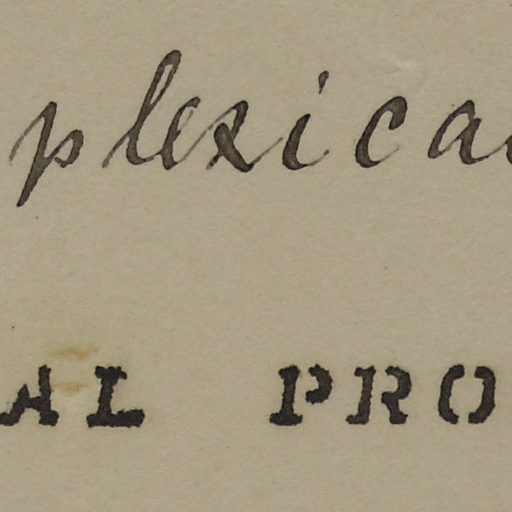 plexica
AL PRO